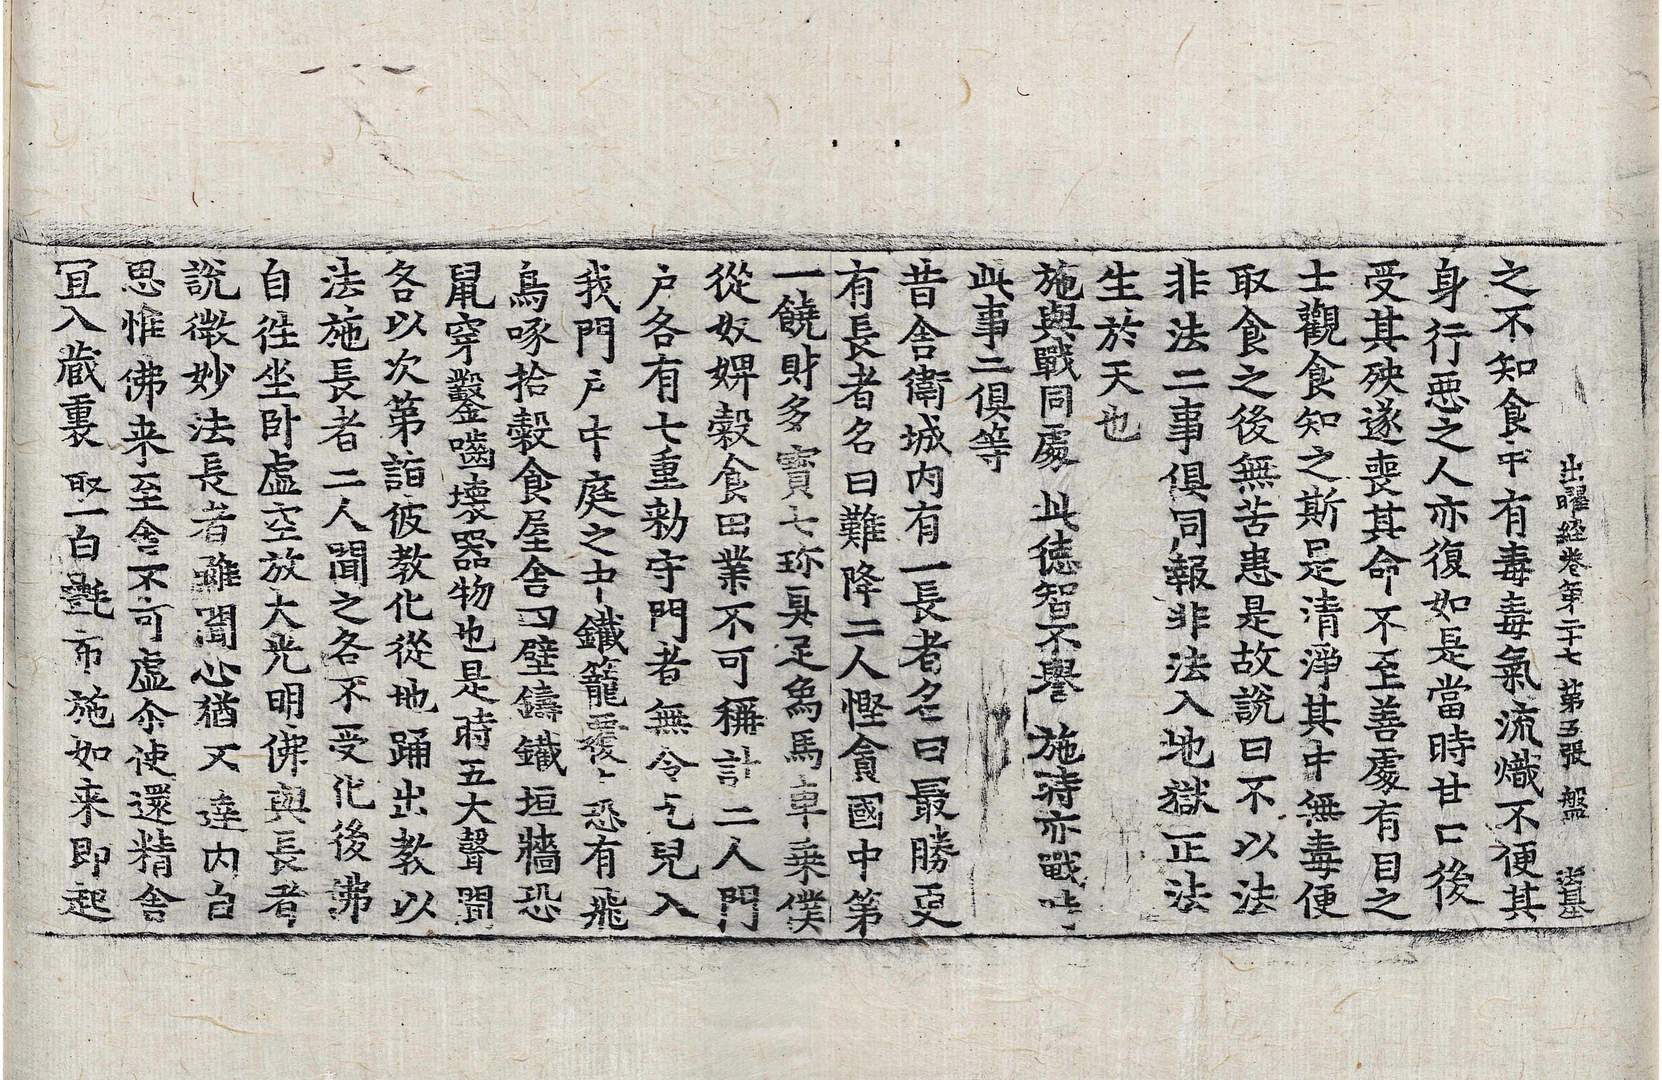 出曜經卷第二十七 第五張 盤
之不知食中有毒毒氣流熾不便其
身行惡之人亦復如是當時甘口後
受其殃遂喪其命不至善處有目之
士觀食知之斯是清淨其中無毒便
取食之後無苦患是故說曰不以法
非法二事俱同報非法入地獄正法
生於天也
施與戰同處 此德智不譽 施時亦戰時
此事二俱等
昔舍衛城內有一長者名曰最勝更
有長者名曰難降二人慳貪國中第
一饒財多寶七珍具足象馬車乘僕
從奴婢穀食田業不可稱計二人門
戶各有七重勑守門者無令乞兒入
我門戶中庭之中鐵籠覆上恐有飛
鳥啄拾穀食屋舍四壁鑄鐵垣牆恐
鼠穿鑿嚙壞器物也是時五大聲聞
各以次第詣彼教化從地踊出教以
法施長者二人聞之各不受化後佛
自往坐臥虛空放大光明佛與長者
說微妙法長者雖聞心猶不達內自
思惟佛来至舍不可虛尒使還精舍
宜入藏裏取一白㲲布施如来即起